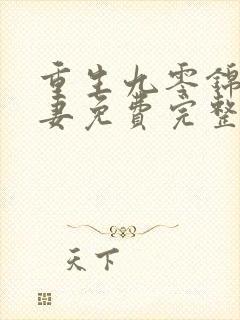 重生九零锦
妻免费完整
天下